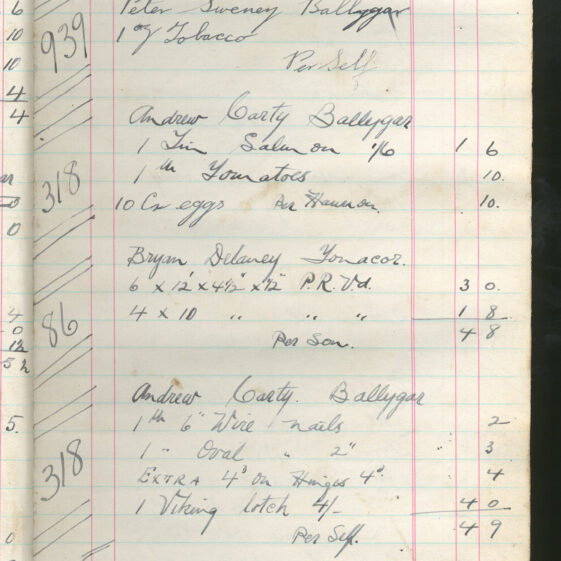 Peter Sweney Ballygar
939
1 oz Tobacco
Per Self
Andrew Carty Ballygar
1 Tin Salmon 1/6 1 6
318
1 lb Tomatoes 10.
10 Cr eggs per 10.
Bryan Delaney Tonacor.
6 x 12' x 4½" x ½" P.R.V.d. 3 0.
86
4 x 10 " " " 1 8
Per Son. 4 8
Andrew Carty. Ballygar
1 lb 6" Wire nails 2
1 - Oval " 2" 3
318
EXTRA 4d on Hinges 4d. 4
1 Viking lotch 4/- 4 0
Per Self. 4 9
6
10
10
4
4
0
0
4
0
12
5 2
5.
0